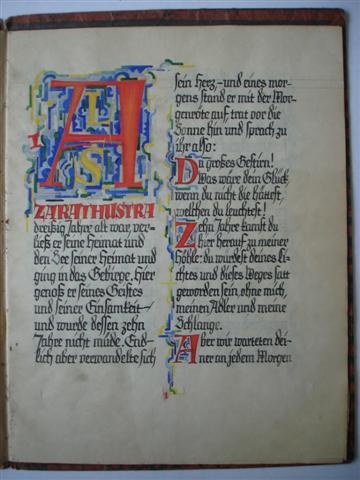 1
ALS
ZARATHUSTRA
dreißig Jahre alt war, ver-
ließ er seine Heimat und
den See seiner Heimat und
ging in das Gebirge. Hier
genoß er seines Geistes
und seiner Einsamkeit
und wurde dessen zehn
Jahre nicht müde. End-
lich aber verwandelte sich
sein Herz, – und eines mor-
gens stand er mit der Mor-
genröte auf, trat vor die
Sonne hin und sprach zu
ihr also:
Du großes Gestirn!
Was wäre dein Glück,
wenn du nicht die hättest,
welchen du leuchtest!
Zehn Jahre kamst du
hier herauf zu meiner
Höhle: du würdest deines Li-
chtes und dieses Weges satt
geworden sein, ohne mich,
meinen Adler und meine
Schlange.
Aber wir warteten dei-
ner an jedem Morgen